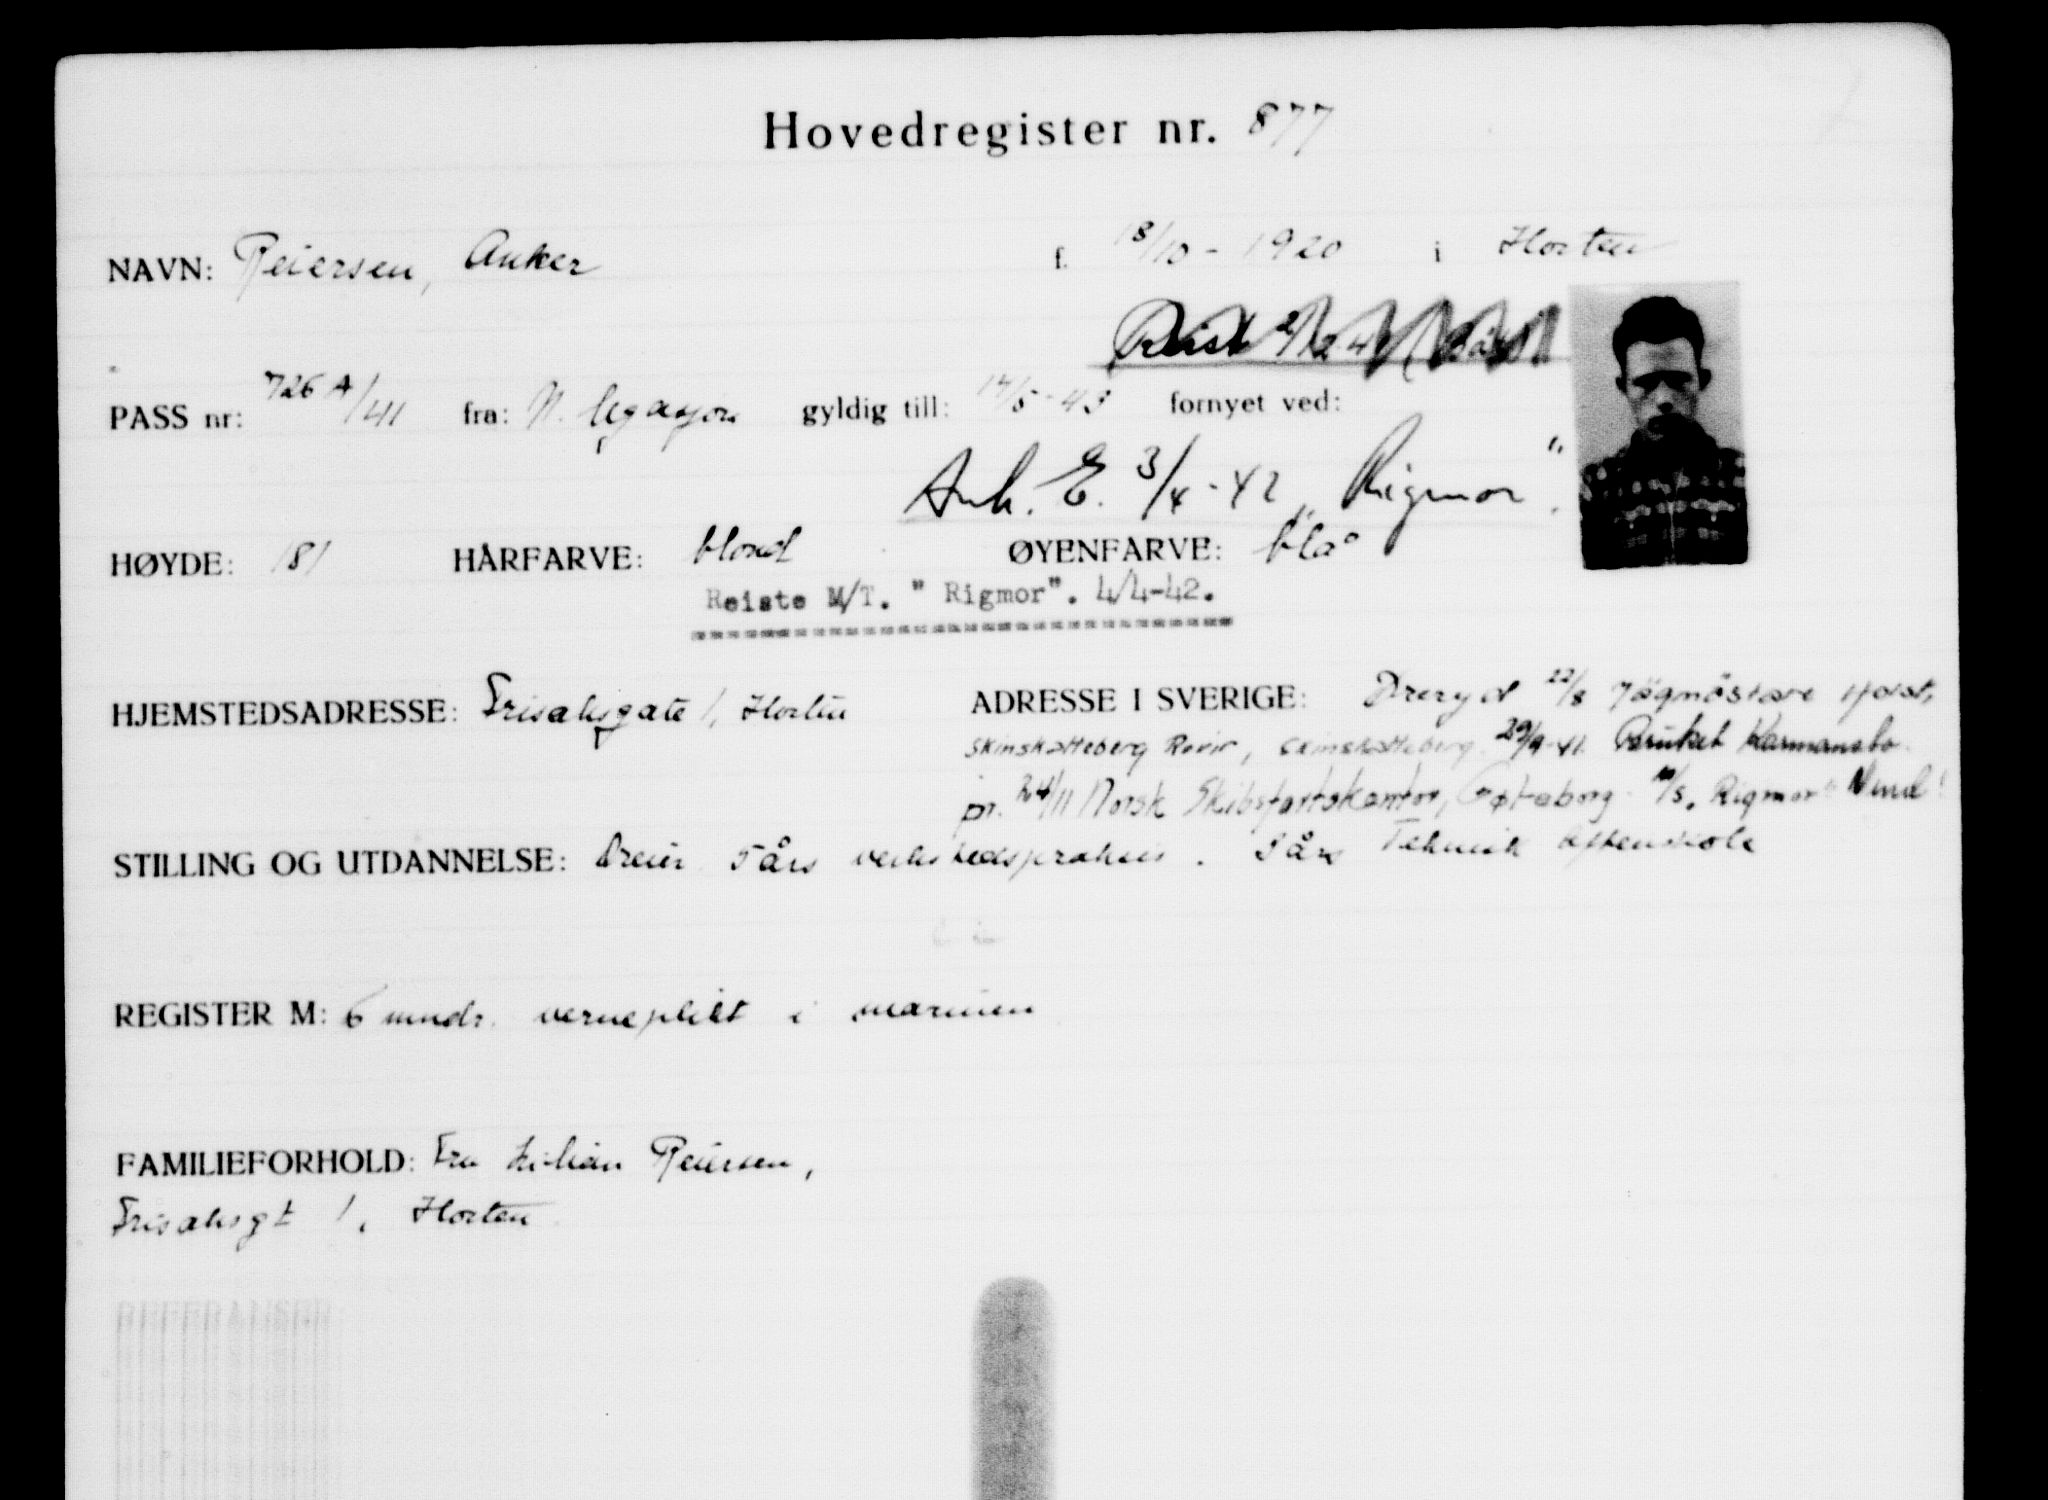 Hovedregister nr. 877
NAVN: Reiersen, Anker f. 18/10 - 1920 i Horten
Reist
PASS nr: 726 A/41 fra: N. legasjon gyldig till: 14/5-43 fornyet ved:
Ank. E. 3/4-42 „Rigmor".
HØYDE: 181 HÅRFARVE: blond ØYENFARVE: blå
Reiste M/T. " Rigmor". 4/4-42.
HJEMSTEDSADRESSE: 1, Horten ADRESSE I SVERIGE: 22/8 Jägmästare
Skinskatteberg Revir, Skinskatteberg. 29/9-41. Bruket Karmansbo.
pr. 24/11 Norsk Skibsfartskontor, Gøteborg. Rigmor"
STILLING OG UTDANNELSE: Dreier 5 års verkstedspraksis. 5 års Teknisk aftenskole
REGISTER M: 6 mndr. verneplikt i marinen
FAMILIEFORHOLD: Fru Lilian Reiersen,
1, Horten
REFERANSER